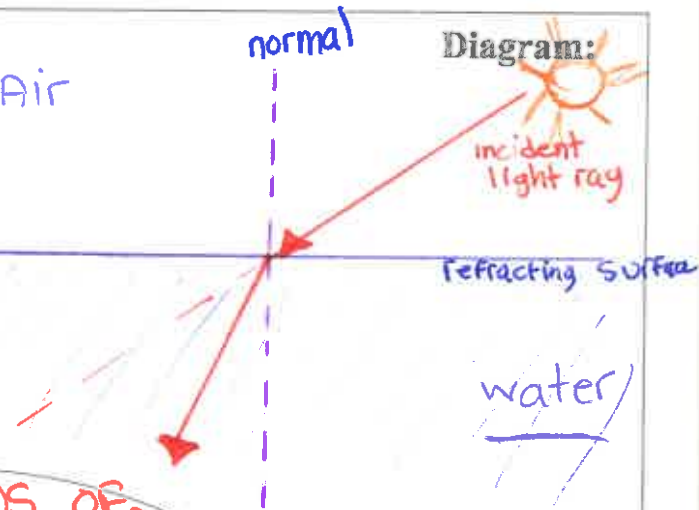 normal
Diagram:
Air
incident
light ray
refracting surface
water
OF